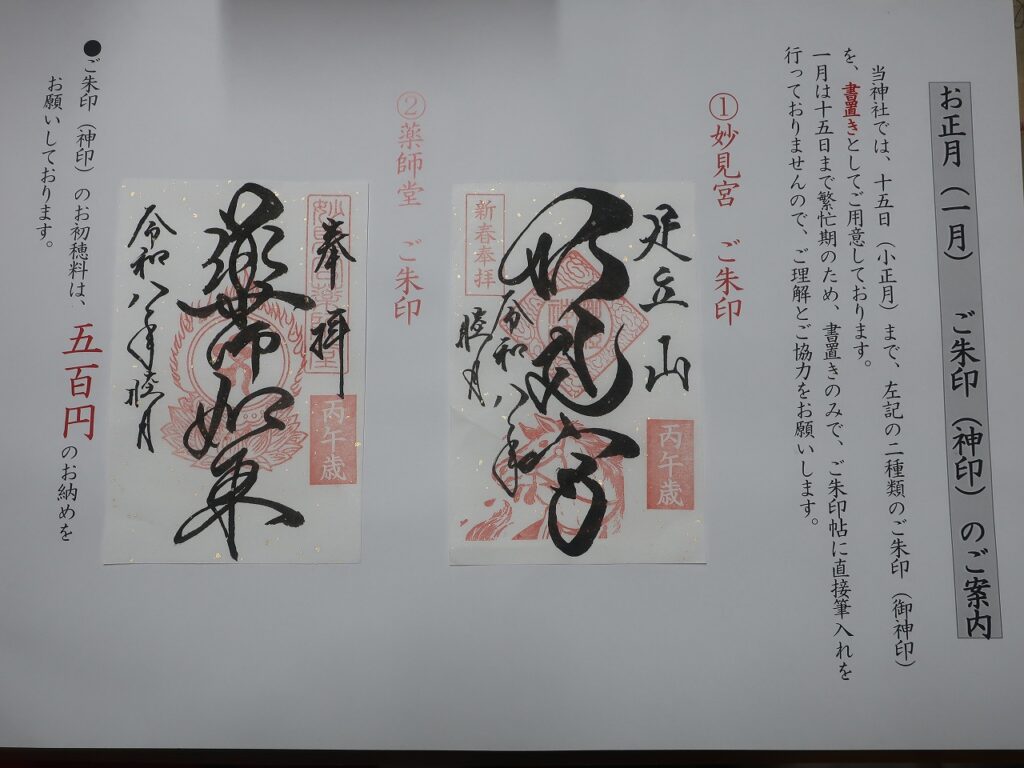 お正月（一月）　ご朱印（神印）のご案内
当神社では、十五日（小正月）まで、左記の二種類のご朱印（御神印）
を、書置きとしてご用意しております。
一月は十五日まで繁忙期のため、書置きのみで、ご朱印帖に直接筆入れを
行っておりませんので、ご理解とご協力をお願いします。
①妙見宮　ご朱印
足立山
丙午歳
妙見宮
新春奉拝
令和八年
睦月
②薬師堂　ご朱印
奉拝
丙午歳
薬師如来
令和八年睦月
●ご朱印（神印）のお初穂料は、五百円のお納めを
お願いしております。